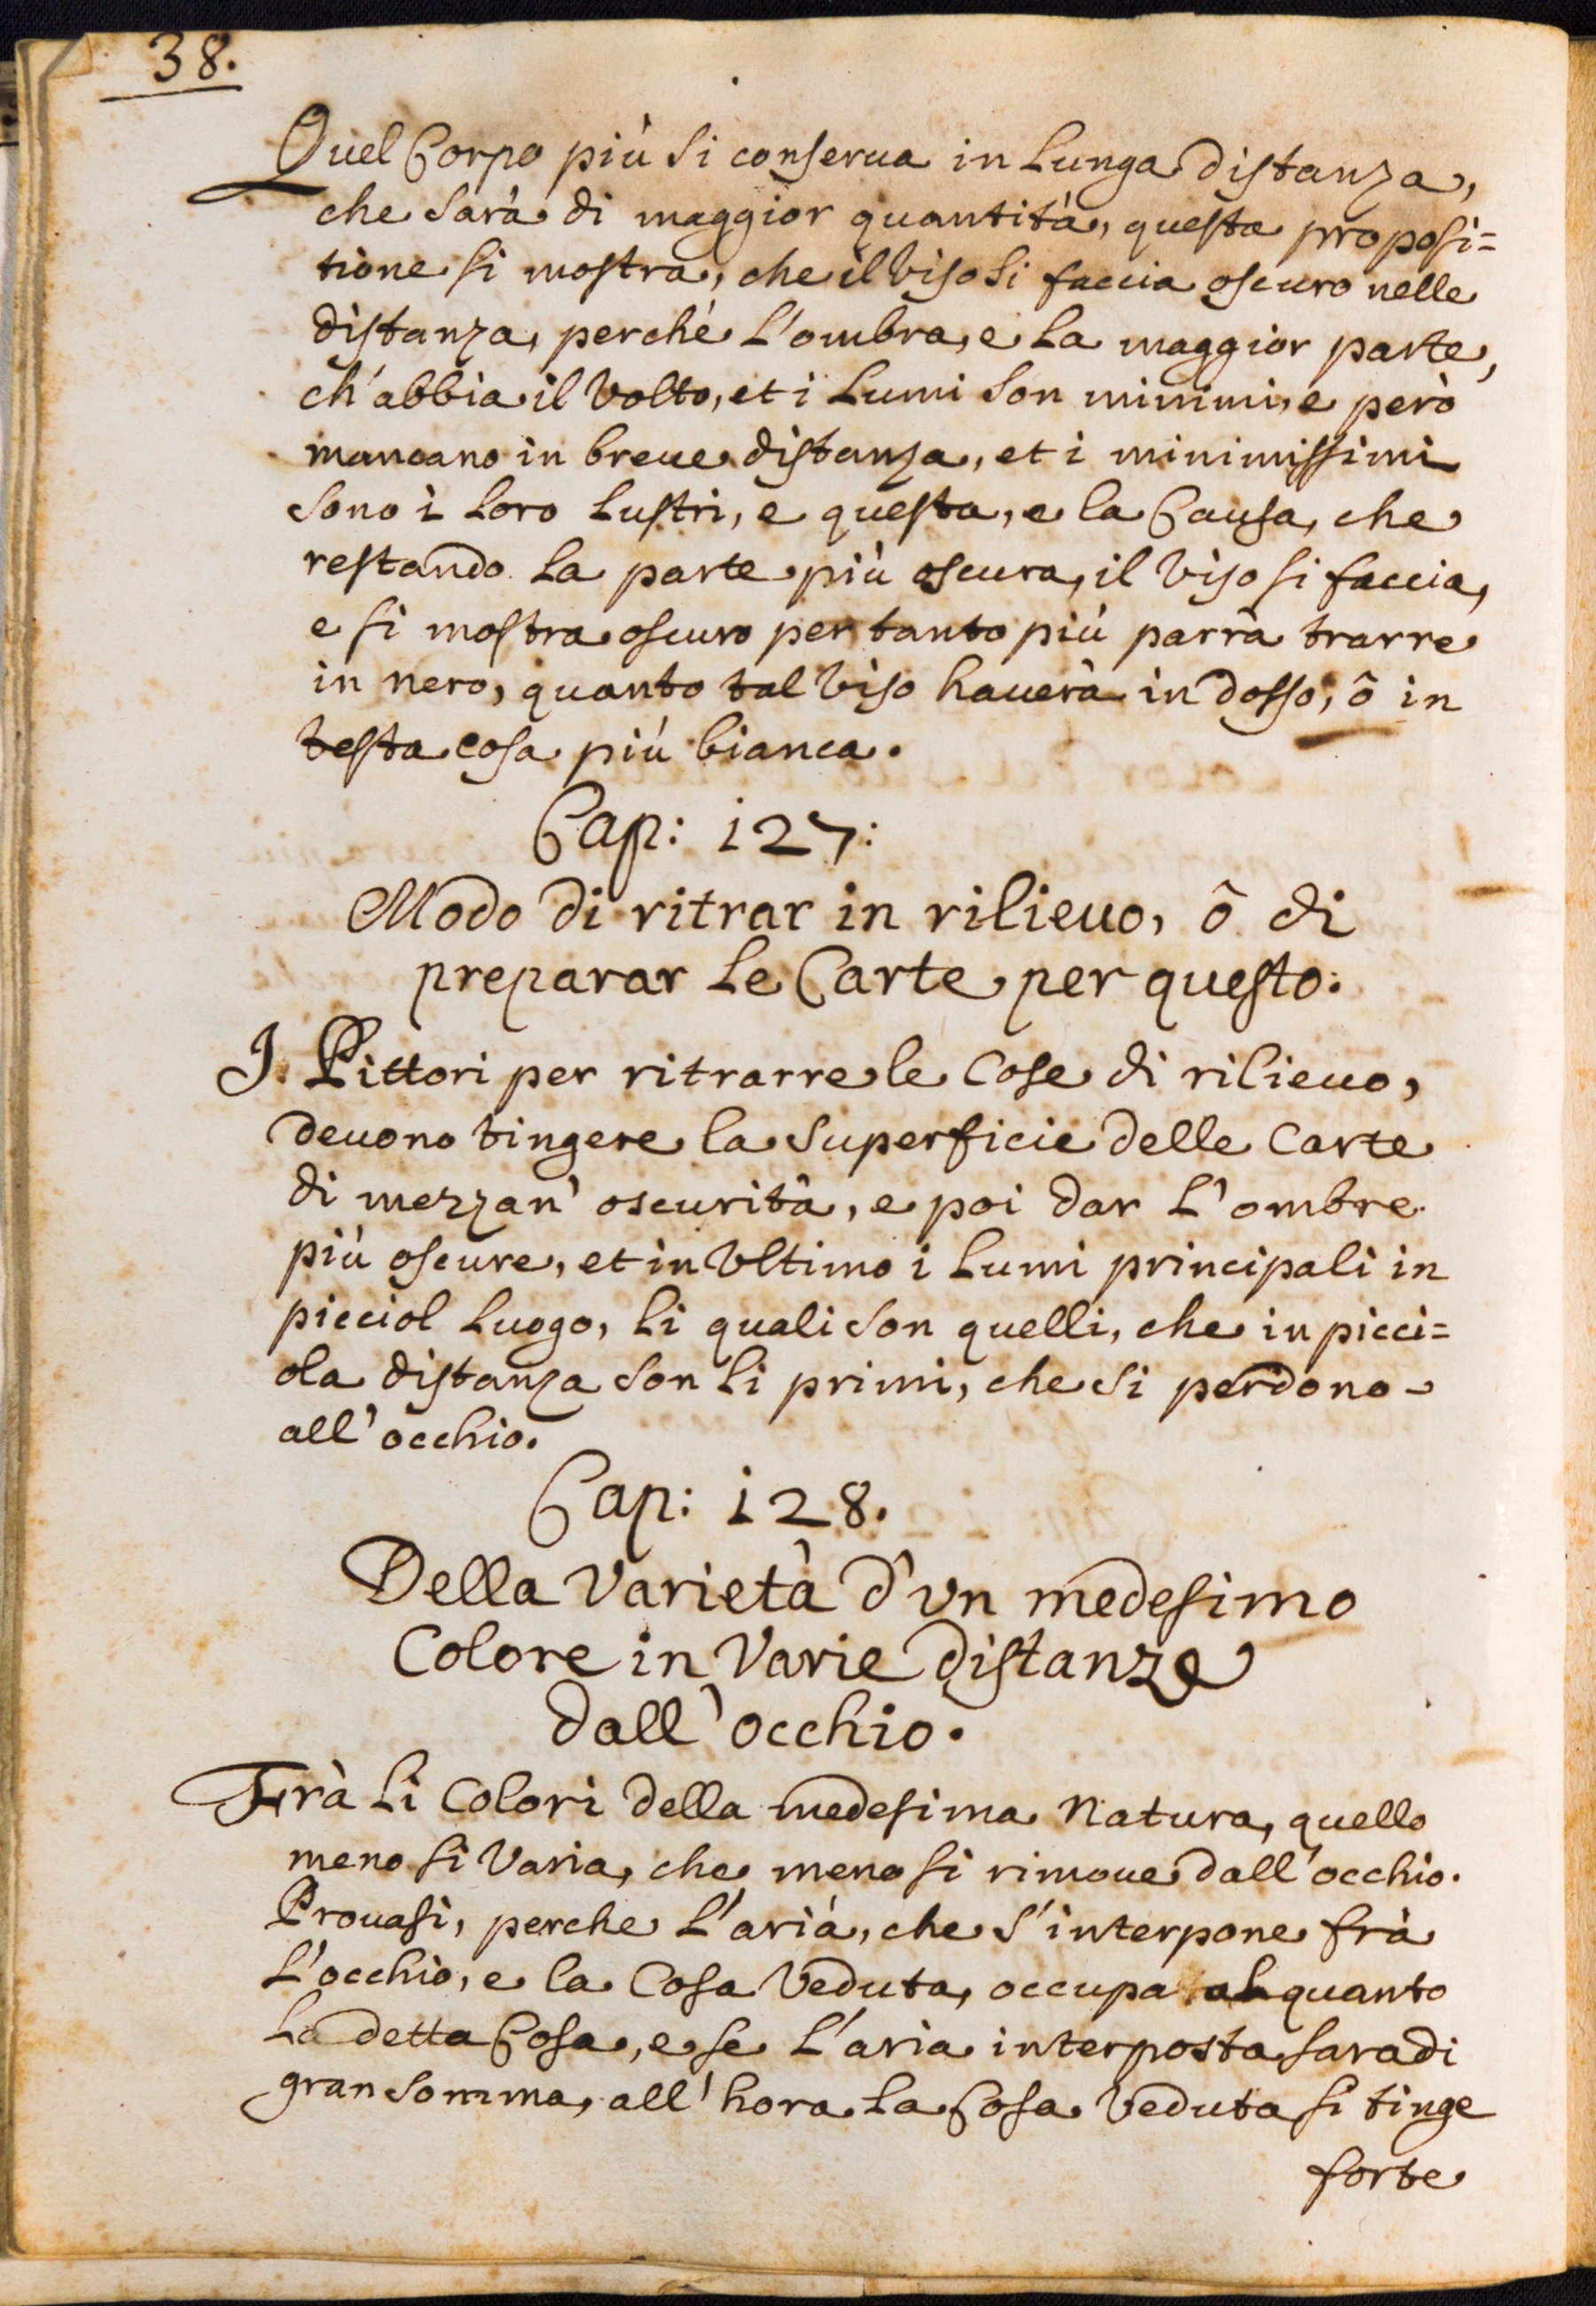 38.
Quel Corpo più si conserua in Lunga distanza,
che sarà di maggior quantità, questa proposi=
tione si mostra, che il viso si faccia oscuro nelle
distanza, perché L'ombra, e La maggior parte,
ch'abbia il Volto, et i Lumi son minimi, e però
mancano in breue distanza, et i minimissimi
sono i Loro Lustri, e questa, e la Causa, che
restando La parte più oscura, il viso si faccia,
e si mostra oscuro per tanto più parrà trarre
in nero, quanto tal viso hauerà in dosso, ô in
testa cosa più bianca.
Cap: 127:
Modo di ritrar in rilieuo, ô di
preparar Le Carte per questo.
I. Pittori per ritrarre le Cose di rilieuo,
deuono tingere la Superficie delle Carte
di mezzan' oscurità, e poi dar L'ombre
più oscure, et in Vltimo i Lumi principali in
picciol Luogo, Li quali son quelli, che in picci=
ola distanza son Li primi, che si perdono
all'occhio.
Cap: 128.
Della Varietà d'vn medesimo
Colore in Varie distanze
dall'occhio.
Frà Li Colori della medesima Natura, quello
meno si Varia, che meno si rimoue dall'occhio.
Prouasi, perche L'arià, che s'interpone frà
L'occhio, e la Cosa Veduta, occupa alquanto
La detta Cosa, e se L'aria interposta sara di
gran somma, all'hora La Cosa Veduta si tinge
forte